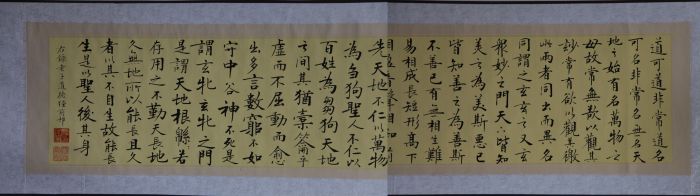 道可道非常道名
可名非常名無名天
地之始有名萬物之
母故常無欲以觀其
妙常有欲以觀其徼
此兩者同出而異名
同謂之玄玄之又玄
衆妙之門天下皆知
美之為美斯惡已
皆知善之為善斯
不善已有無相生難
易相成長短形高下
相
先天地不仁以萬物
為芻狗聖人不仁以
百姓為芻狗天地
之間其猶橐籥乎
虛而不屈動而愈
出多言數窮不如
守中谷神不死是
謂玄牝玄牝之門
是謂天地根緜若
存用之不勤天長地
久天地所以能長且久
者以其不自生故能長
生是以聖人後其身
右錄老子道德經